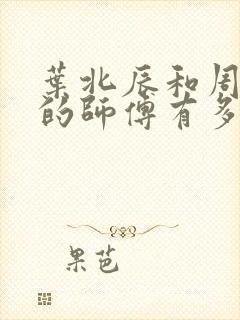 葉北辰和周
的師傅有多
果芭